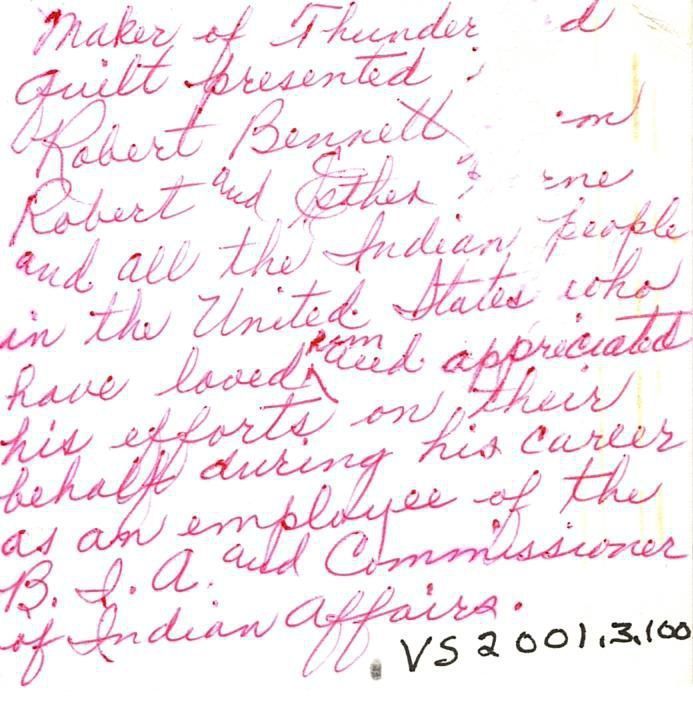 Maker of Thunder
quilt presented
Robert Bennett
Robert and Esther
and all the Indian people
in the United States who
have loved him and appreciated
his efforts on their
behalf during his career
as an employee of the
B. I. A. and Commissioner
of Indian Affairs.
VS2001.3.100